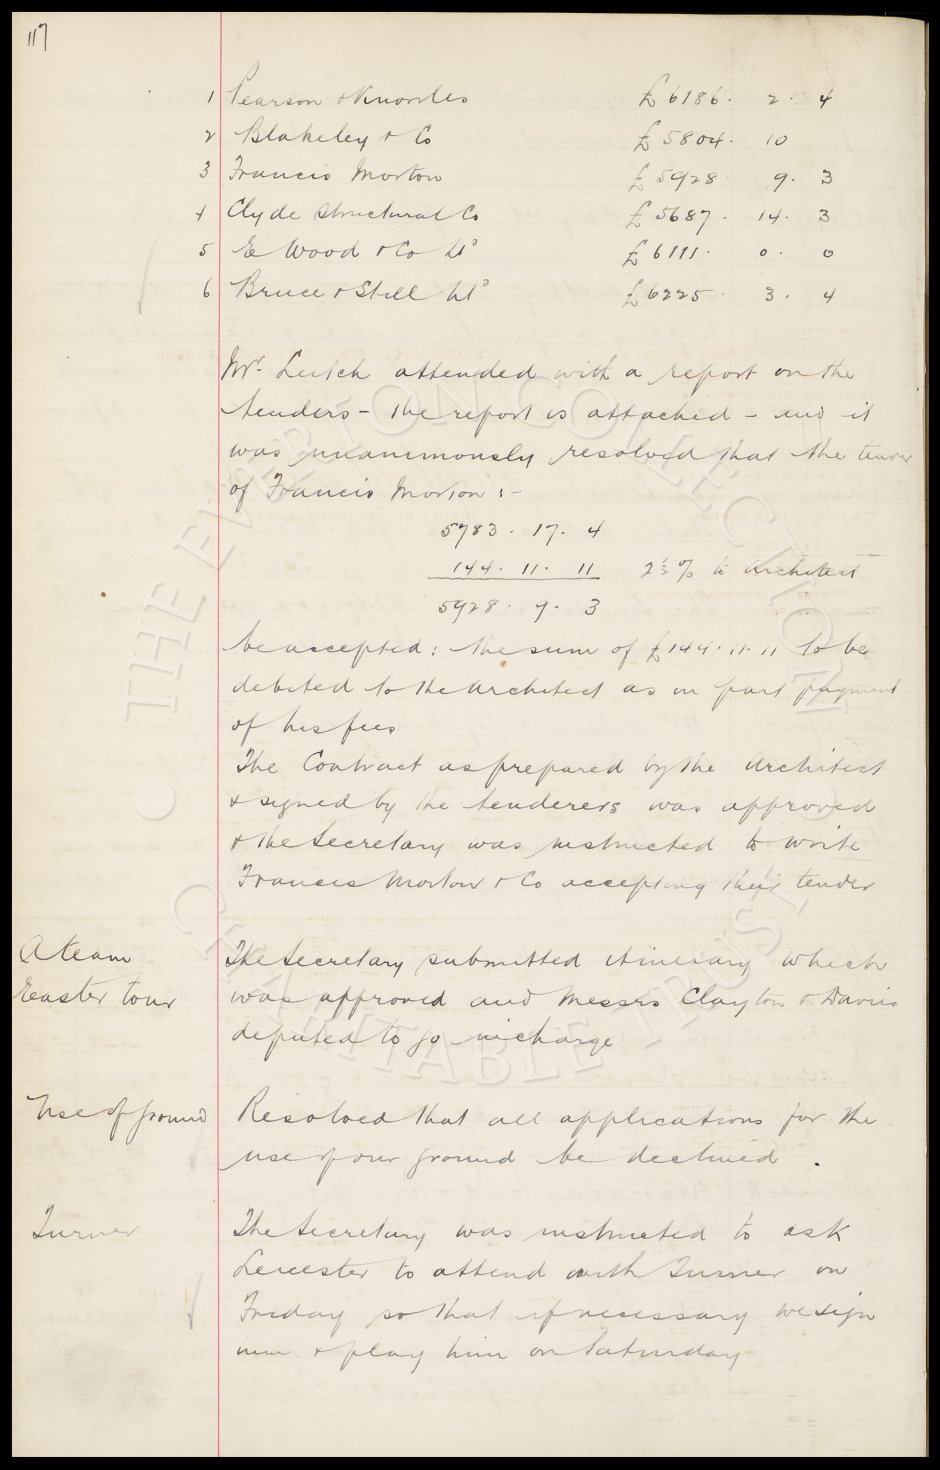 117
1 Pearson & Knowles £6186. 2. 4
2 Blakeley & Co £5804. 10
3 Francis Morton £5928. 9. 3
4 Clyde Structural Co £5687. 14. 3
5 E Wood & Co Ltd £6111. 0. 0
6 Bruce & Still Ltd £6225. 3. 4
Mr. Leitch attended with a report on the
tenders - the report is attached - and it
was unanimously resolved that the tender
of Francis Morton :-
5783. 17. 4
144. 11. 11 2½% to Architect
5928. 9. 3
be accepted: the sum of £144. 11. 11 to be
debited to the Architect as in part payment
of his fees
The Contract as prepared by the Architect
& signed by the tenderers was approved
& the Secretary was instructed to write
Francis Morton & Co accepting their tender
A team
Easter tour
The Secretary submitted itinerary which
was approved and Messrs Clayton & Davies
deputed to go in charge
Use of ground
Resolved that all applications for the
use of our ground be declined.
Turner
The Secretary was instructed to ask
Leicester to attend with Turner on
Friday so that if necessary we sign
him & play him on Saturday
THE EVERTON COLLECTION
CHARITABLE TRUST